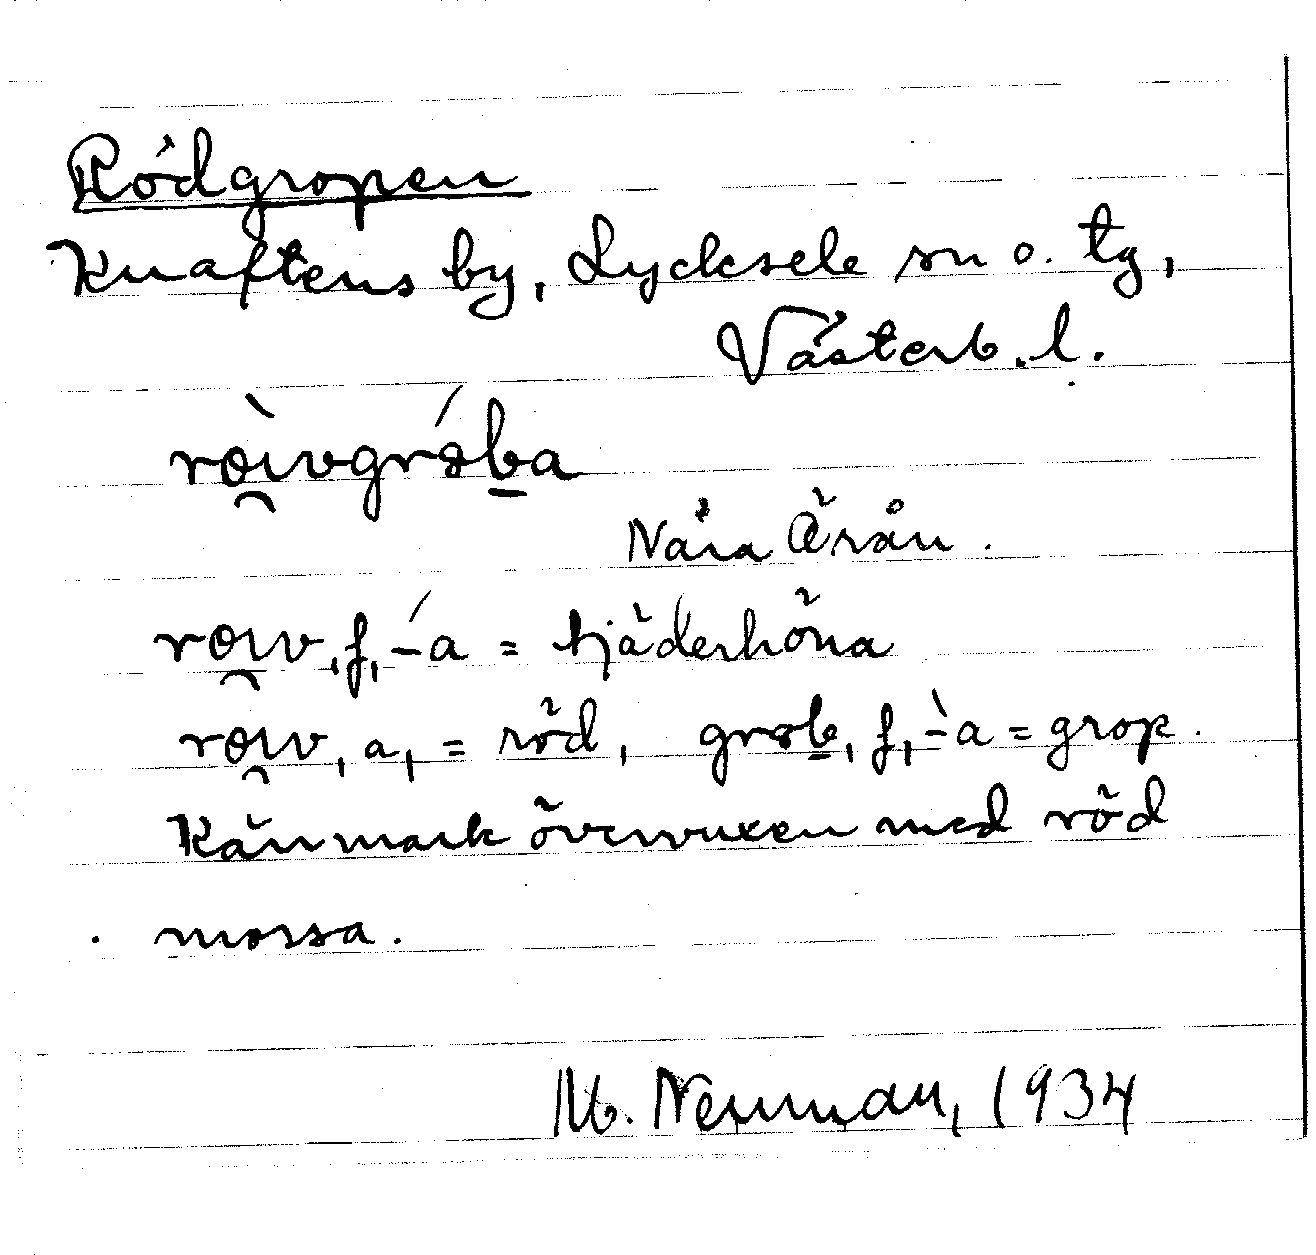 Rödgropen
Knaftens by, Lycksele sn o. tg,
Västerb. l.
rö̀i̯vgrə́ba
Nära Örån.
röi̯v, f, -́a = tjäderhöna
röi̯v, a, = röd, grəb, f, -̀a = grop.
Kärrmark övervuxen med röd
mossa.
M. Neuman, 1934